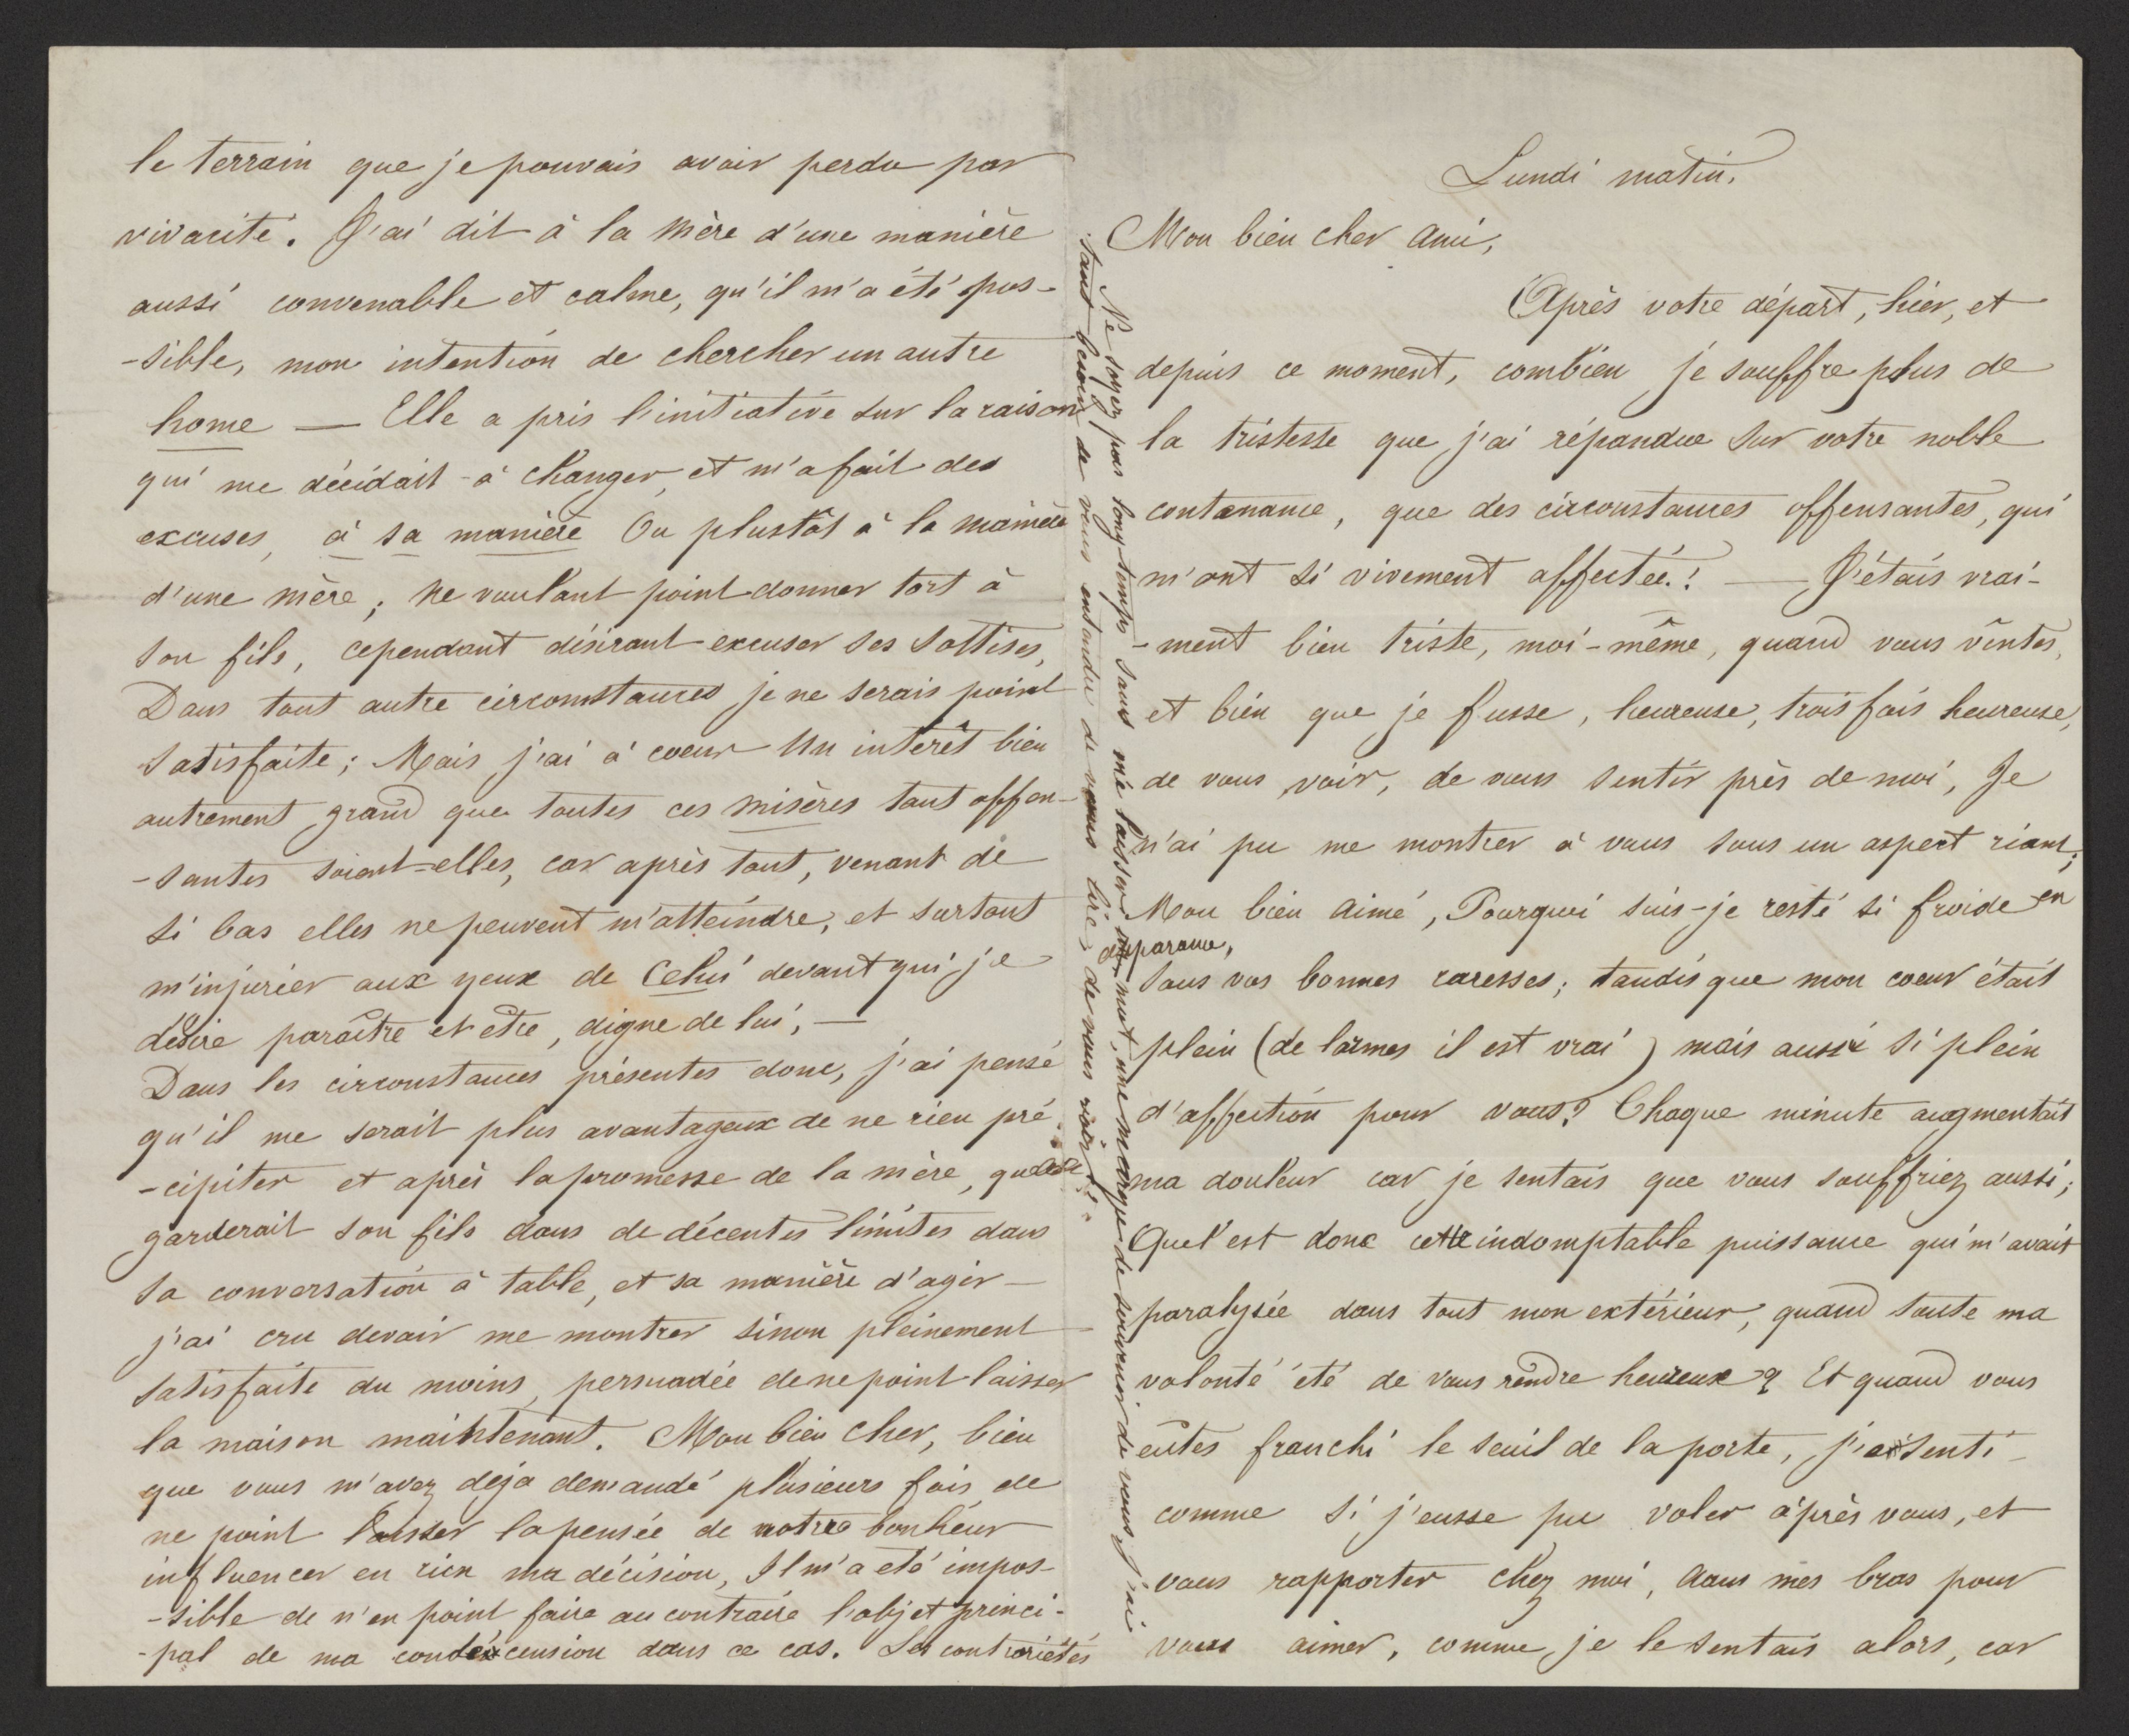 le terrain que je pouvais avoir perdu par
vivacité. J'ai dit à la mère d'une manière
aussi convenable et calme, qu'il m'a été pos-
-sible, mon intention de chercher un autre
home — Elle a pris l'initiative sur la raison
qui me décidait à changer, et m'a fait des
excuses, à sa manière Ou plustôt à la manière
d'une mère, ne voulant point donner tort à
son fils, cependant désirant excuser ses sottises,
Dans tout autre circonstances je ne serais point
satisfaite; Mais j'ai à coeur Un intérêt bien
autrement grand que toutes ces misères tant offen-
-santes soient-elles, car après tout, venant de
si bas elles ne peuvent m'atteindre, et surtout
m'injurier aux yeux de Celui devant qui je
désire paraître et être, digne de lui, —
Dans les circonstances présentes donc, j'ai pensé
qu'il me serait plus avantageux de ne rien pré-
-cipiter et après la promesse de la mère, qu'elle
garderait son fils dans de décentes limites dans
sa conversation à table, et sa manière d'agir —
j'ai cru devoir me montrer sinon pleinement
satisfaite du moins, persuadée de ne point laisser
la maison maintenant. Mon bien cher, bien
que vous m'avez déja demandé plusieurs fois de
ne point laisser la pensée de notre bonheur
influencer en rien ma décision, Il m'a été impos-
-sible de n'en point faire au contraire l'objet princi-
-pal de ma condescension dans ce cas. Les contrariétés
Lundi matin.
Mon bien cher ami,
Après votre départ, hier, et
depuis ce moment, combien je souffre plus de
la tristesse que j'ai répandue sur votre noble
contenance, que des circonstances offensantes, qui
m'ont si vivement affectée! — J'étais vrai-
-ment bien triste, moi-même, quand vous vîntes,
et bien que je fusse, heureuse, trois fois heureuse,
de vous voir, de vous sentir près de moi, Je
n'ai pu me montrer à vous sous un aspect riant;
Mon bien aimé, Pourquoi suis-je resté si froide en
apparence,
sous vos bonnes caresses; tandis que mon coeur était
plein (de larmes il est vrai) mais aussi si plein
d'affection pour vous? Chaque minute augmentait
ma douleur car je sentais que vous souffriez aussi;
Quel est donc cette indomptable puissance qui m'avait
paralysée dans tout mon extérieur, quand toute ma
volonté été de vous rendre heureux? Et quand vous
eûtes franchi le seuil de la porte, j'ai senti
comme si j'eusse pu voler après vous, et
vous rapporter chez moi, dans mes bras pour
vous aimer, comme je le sentais alors, car
Ne soyez pas long-temps sans me laisser un mot, une marque de souvenir de vous, j'ai
tant besoin de vous entendre de vous lire, de vous voir!